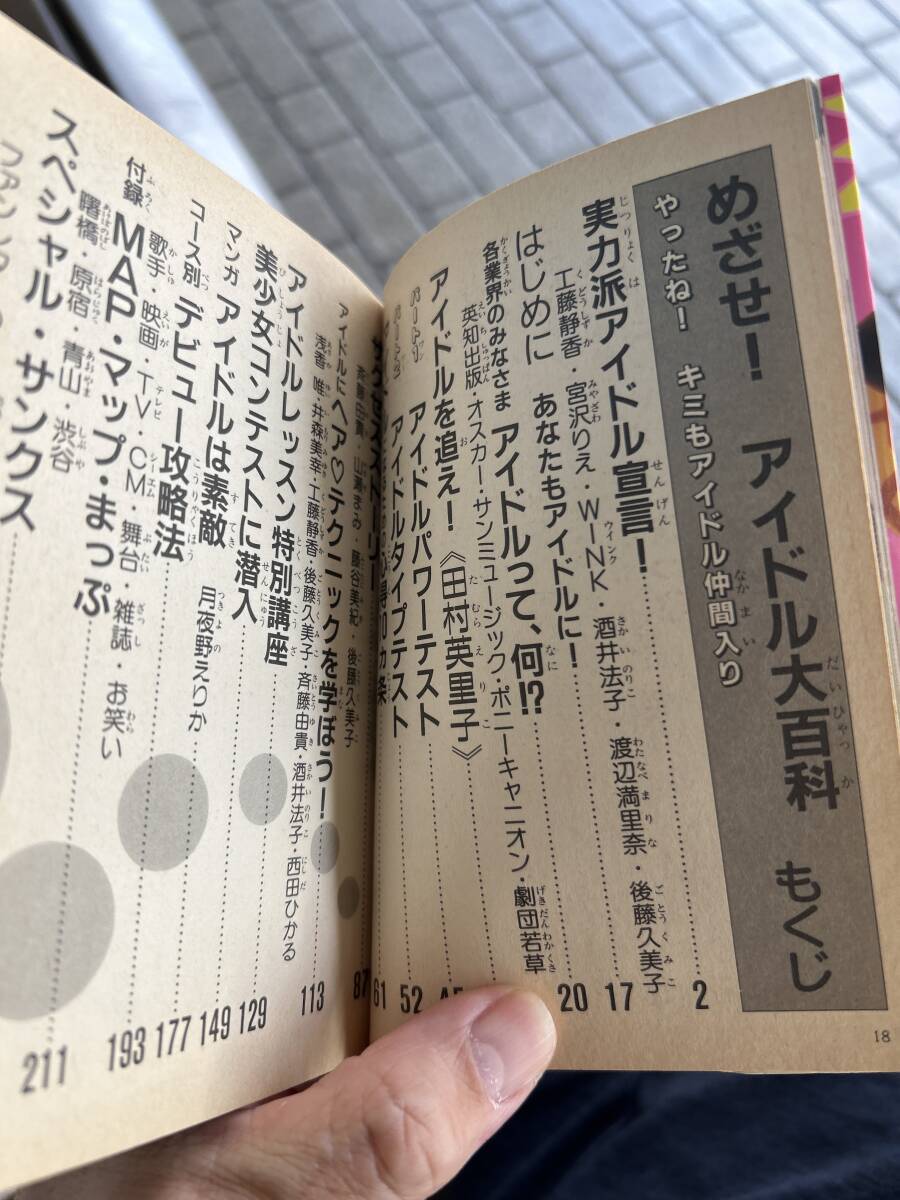 めざせ！ アイドル大百科 もくじ
やったね！ キミもアイドル仲間入り
実力派アイドル宣言！ 2
工藤静香・宮沢りえ・WINK・酒井法子・渡辺満里奈・後藤久美子
はじめに あなたもアイドルに！ 17
各業界のみなさま アイドルって、何!? 20
英知出版・オスカー・サンミュージック・ポニーキャニオン・劇団若草
アイドルを追え！《田村英里子》
パート1 アイドルパワーテスト 52
アイドルタイプテスト 61
10カ条
サクセスストーリー 87
斉藤由貴・山瀬まみ・藤谷美紀・後藤久美子
アイドルにヘア♡テクニックを学ぼう！ 113
浅香唯・井森美幸・工藤静香・後藤久美子・斉藤由貴・酒井法子・西田ひかる
アイドルレッスン特別講座 129
美少女コンテストに潜入 149
マンガ アイドルは素敵 月夜野えりか 177
コース別 デビュー攻略法 193
歌手・映画・TV・CM・舞台・雑誌・お笑い
付録 MAP・マップ・まっぷ 211
曙橋・原宿・青山・渋谷
スペシャル・サンクス
18